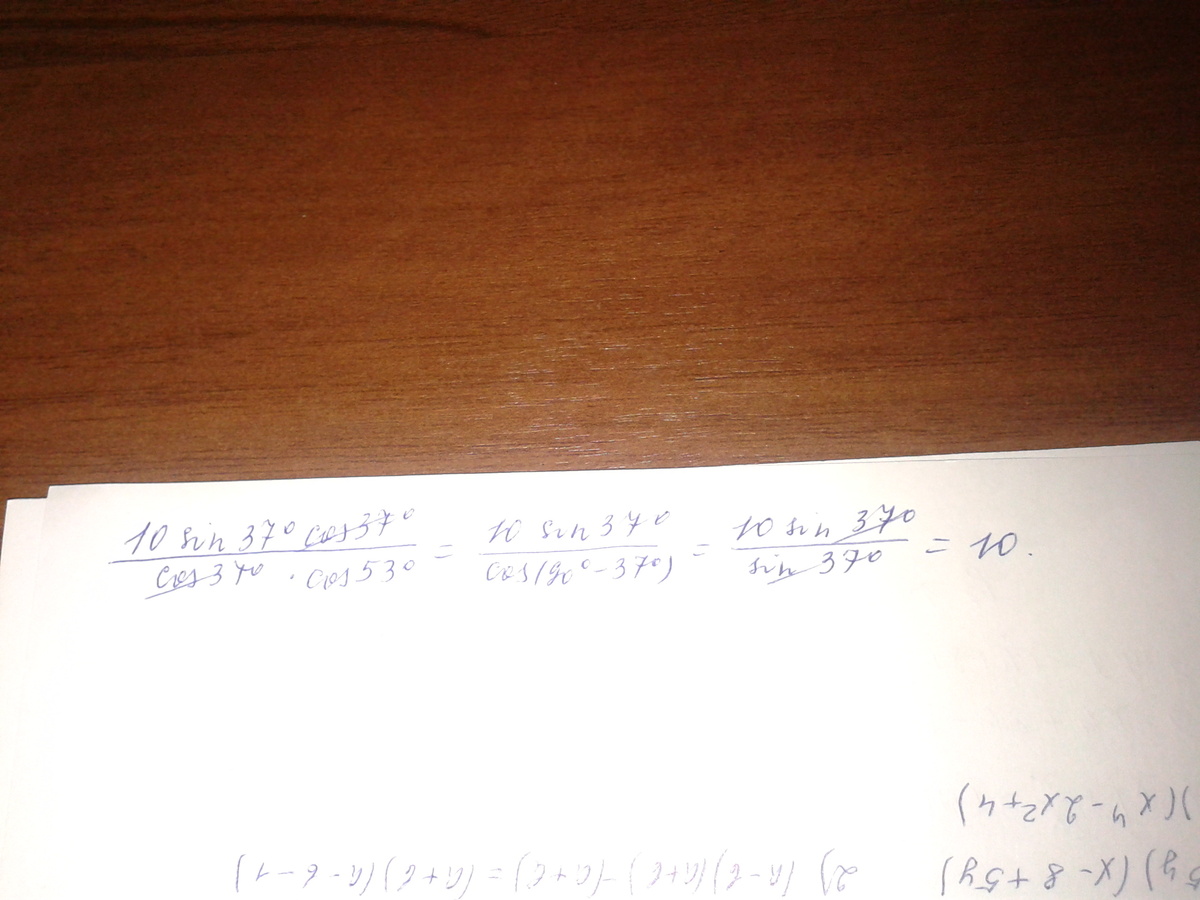 10 sin 37° cos 37° / cos 37° · cos 53° = 10 sin 37° / cos(90° - 37°) = 10 sin 37° / sin 37° = 10.
)(x⁴ - 2x² + 4)
5y)(x - 8 + 5y)
2) (a - b)(a + b) - (a + b) = (a + b)(a - b - 1)